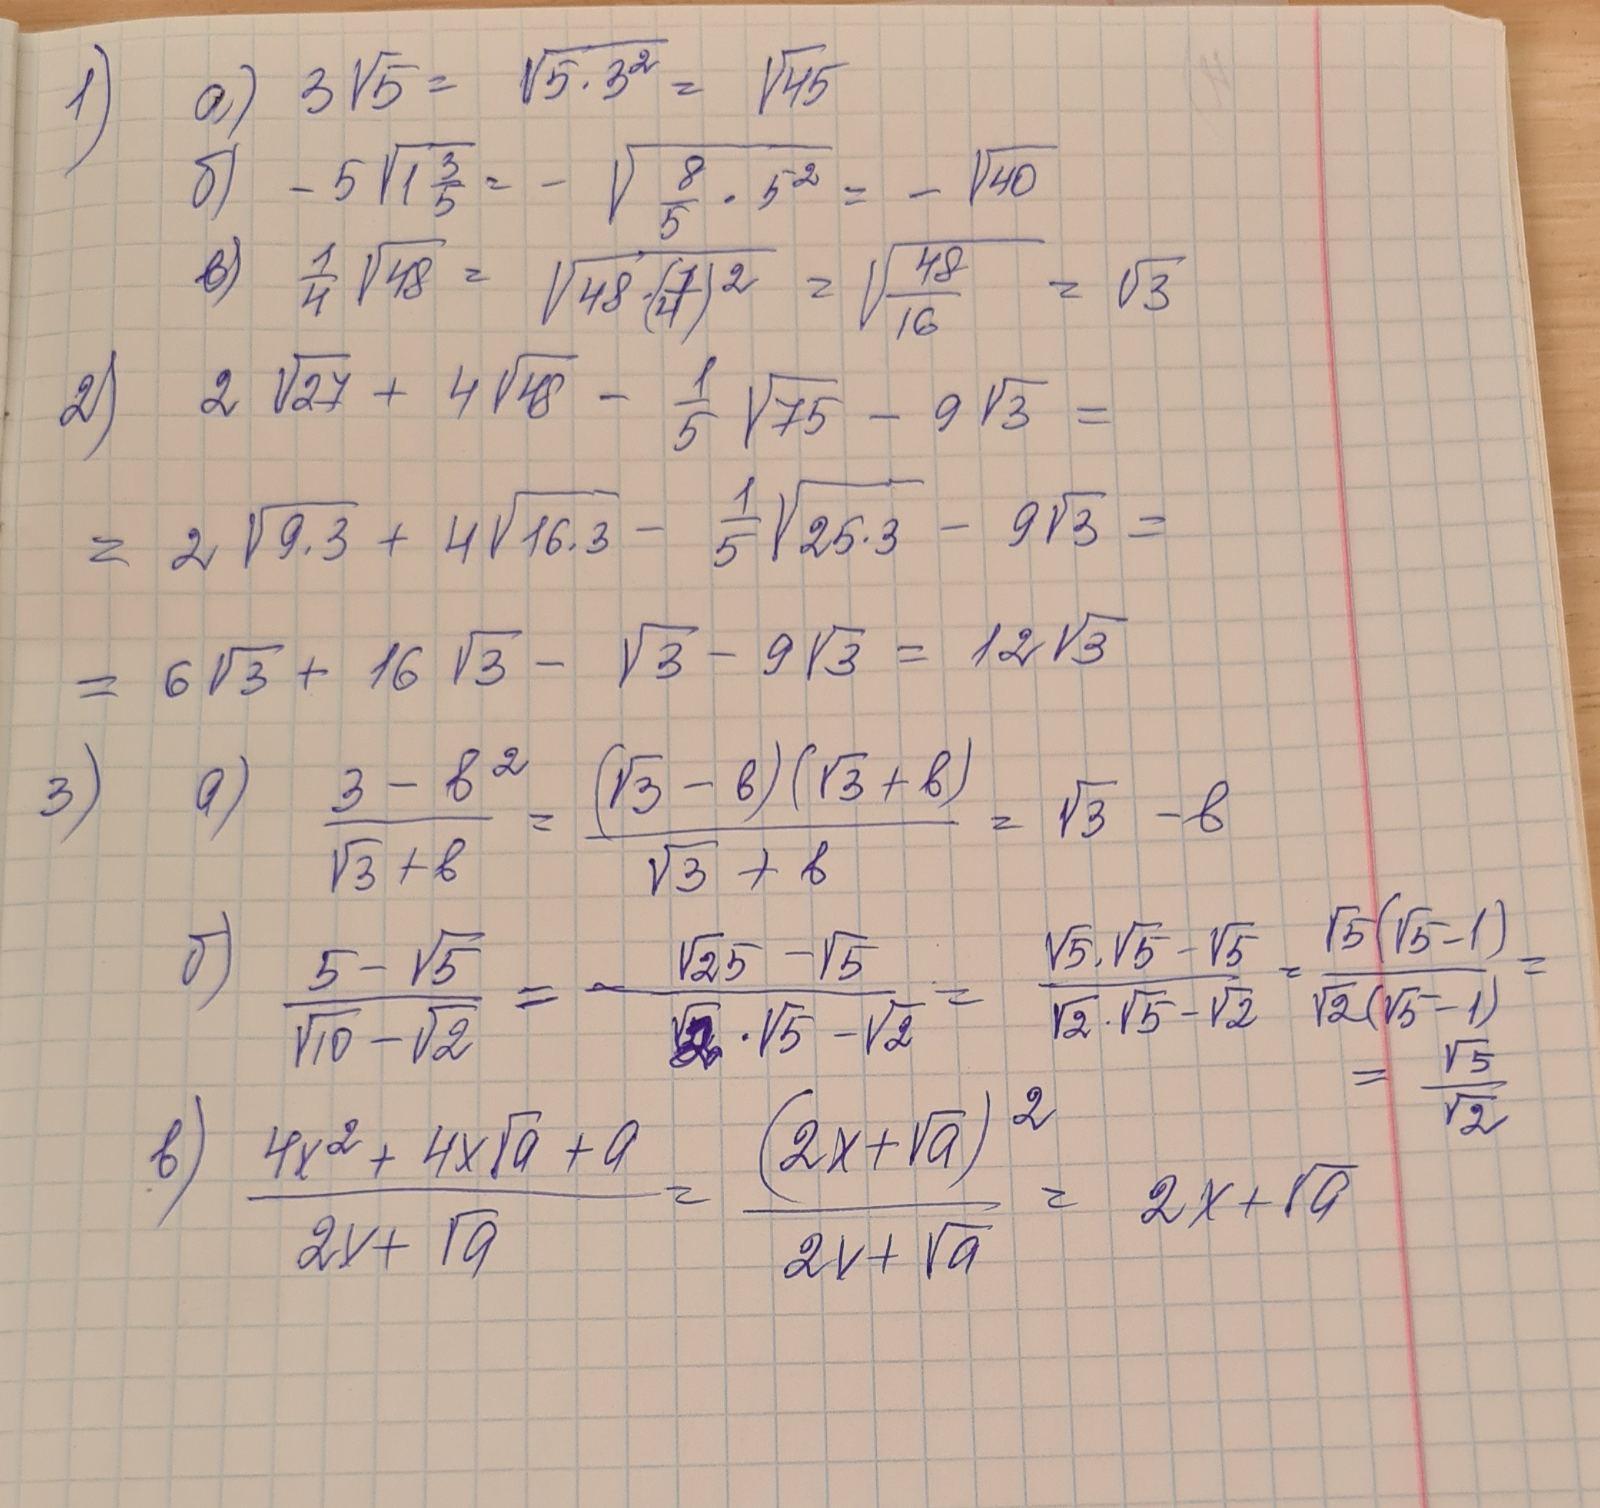 1) а) 3√5 = √(5·3²) = √45
б) -5√(1 3/5) = -√(8/5 · 5²) = -√40
в) 1/4 √48 = √(48·(1/4)²) = √(48/16) = √3
2) 2√27 + 4√48 - 1/5 √75 - 9√3 =
= 2√(9·3) + 4√(16·3) - 1/5 √(25·3) - 9√3 =
= 6√3 + 16√3 - √3 - 9√3 = 12√3
3) а) (3 - в²)/(√3 + в) = ((√3 - в)(√3 + в))/(√3 + в) = √3 - в
б) (5 - √5)/(√10 - √2) = (√25 - √5)/(√2 · √5 - √2) = (√5·√5 - √5)/(√2·√5 - √2) = (√5(√5 - 1))/(√2(√5 - 1)) =
= √5/√2
в) (4x² + 4x√a + a)/(2x + √a) = (2x + √a)²/(2x + √a) = 2x + √a